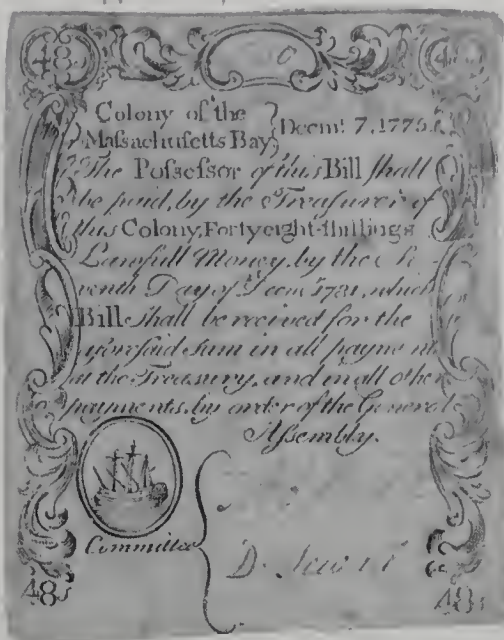 48
Colony of the
Maſsachuſetts Bay
Decmr. 7, 1775.
The Poſseſsor of this Bill ſhall
be paid, by the Treaſurer of
this Colony, Fortyeight Shillings
Lawfull Money, by the
venth Day of Decmr. 1781, which
Bill ſhall be received for the
aforeſaid ſum in all payments
at the Treaſury, and in all other
payments, by order of the General
Aſsembly.
Committee
D.
48s
48s